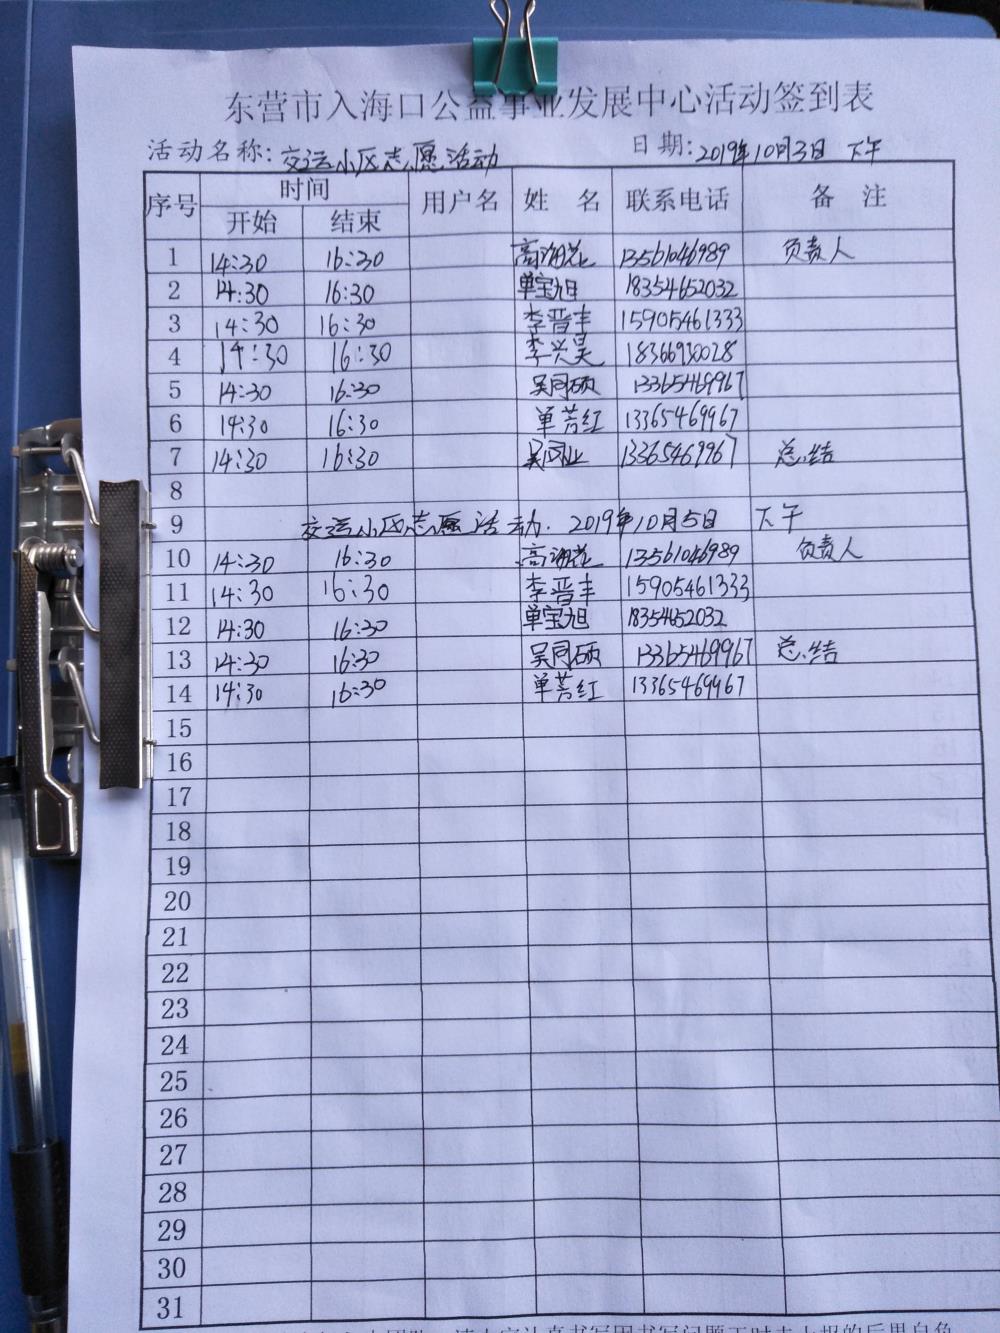 东营市入海口公益事业发展中心活动签到表
活动名称: 交运小区志愿活动 日期: 2019年10月3日 下午
序号 时间 用户名 姓 名 联系电话 备 注
开始 结束
1 14:30 16:30 高湖花 13561046989 负责人
2 14:30 16:30 单宝旭 18354652032
3 14:30 16:30 李晋丰 15905461333
4 14:30 16:30 李兴昊 18366930028
5 14:30 16:30 吴同硕 13365469967
6 14:30 16:30 单芳红 13365469967
7 14:30 16:30 吴同业 13365469967 总结
8
9 交运小区志愿活动. 2019年10月5日 下午
10 14:30 16:30 高湖花 13561046989 负责人
11 14:30 16:30 李晋丰 15905461333
12 14:30 16:30 单宝旭 18354652032
13 14:30 16:30 吴同硕 13365469967 总结
14 14:30 16:30 单芳红 13365469967
15
16
17
18
19
20
21
22
23
24
25
26
27
28
29
30
31